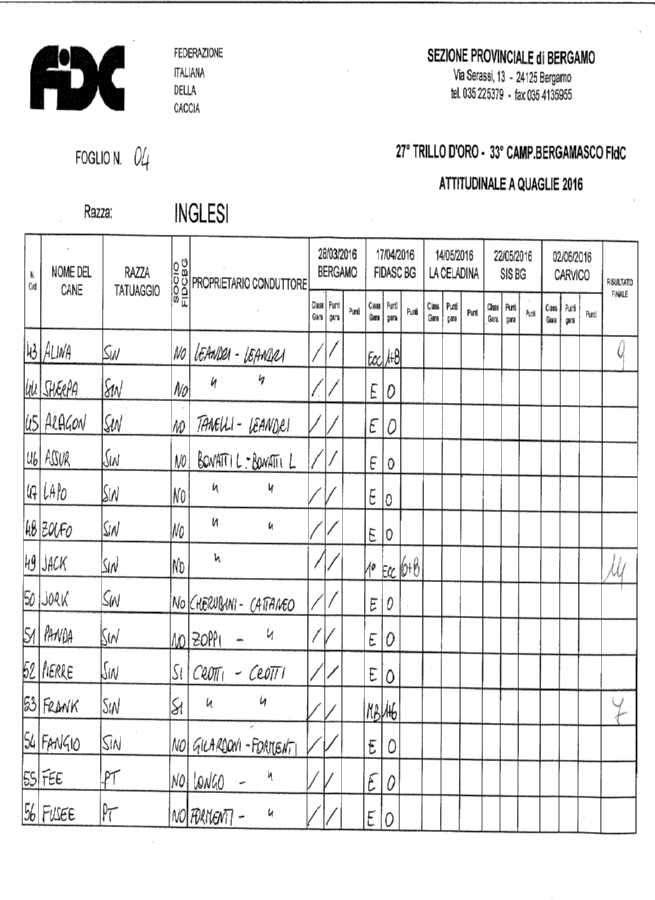 FIDC
FEDERAZIONE
ITALIANA
DELLA
CACCIA
SEZIONE PROVINCIALE di BERGAMO
Via Serassi, 13 - 24125 Bergamo
tel. 035 225379 - fax 035 4135955
FOGLIO N. 04
27° TRILLO D'ORO - 33° CAMP.BERGAMASCO FIdC
ATTITUDINALE A QUAGLIE 2016
Razza: INGLESI
N. Ord NOME DEL CANE RAZZA TATUAGGIO SOCIO FIDCBG PROPRIETARIO CONDUTTORE 28/03/2016 BERGAMO 17/04/2016 FIDASC BG 14/05/2016 LA CELADINA 22/05/2016 SIS BG 02/06/2016 CARVICO RISULTATO FINALE
Class Gara Punti gara Punti Class Gara Punti gara Punti Class Gara Punti gara Punti Class Gara Punti gara Punti Class Gara Punti gara Punti
43 ALINA SIN NO LEANDRI - LEANDRI / / Ecc 1+8 9
44 SHERPA SIN NO " " / / E 0
45 ARAGON SIN NO TANELLI - LEANDRI / / E 0
46 ASSUR SIN NO BONATTI L - BONATTI L / / E 0
47 LAPO SIN NO " " / / E 0
48 ZOLFO SIN NO " " / / E 0
49 JACK SIN NO " / / 1° ECC 6+8 14
50 JORK SIN NO CHERUBINI - CATTANEO / / E 0
51 PANDA SIN NO ZOPPI - " / / E 0
52 PIERRE SIN SI CROTTI - CROTTI / / E 0
53 FRANK SIN SI " " / / MB 1+6 7
54 FANGIO SIN NO GILARDONI - FORMENTI / / E 0
55 FEE PT NO LONGO - " / / E 0
56 FUSEE PT NO FORMENTI - " / / E 0